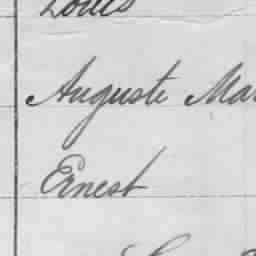 Louis
Auguste Mar
Ernest